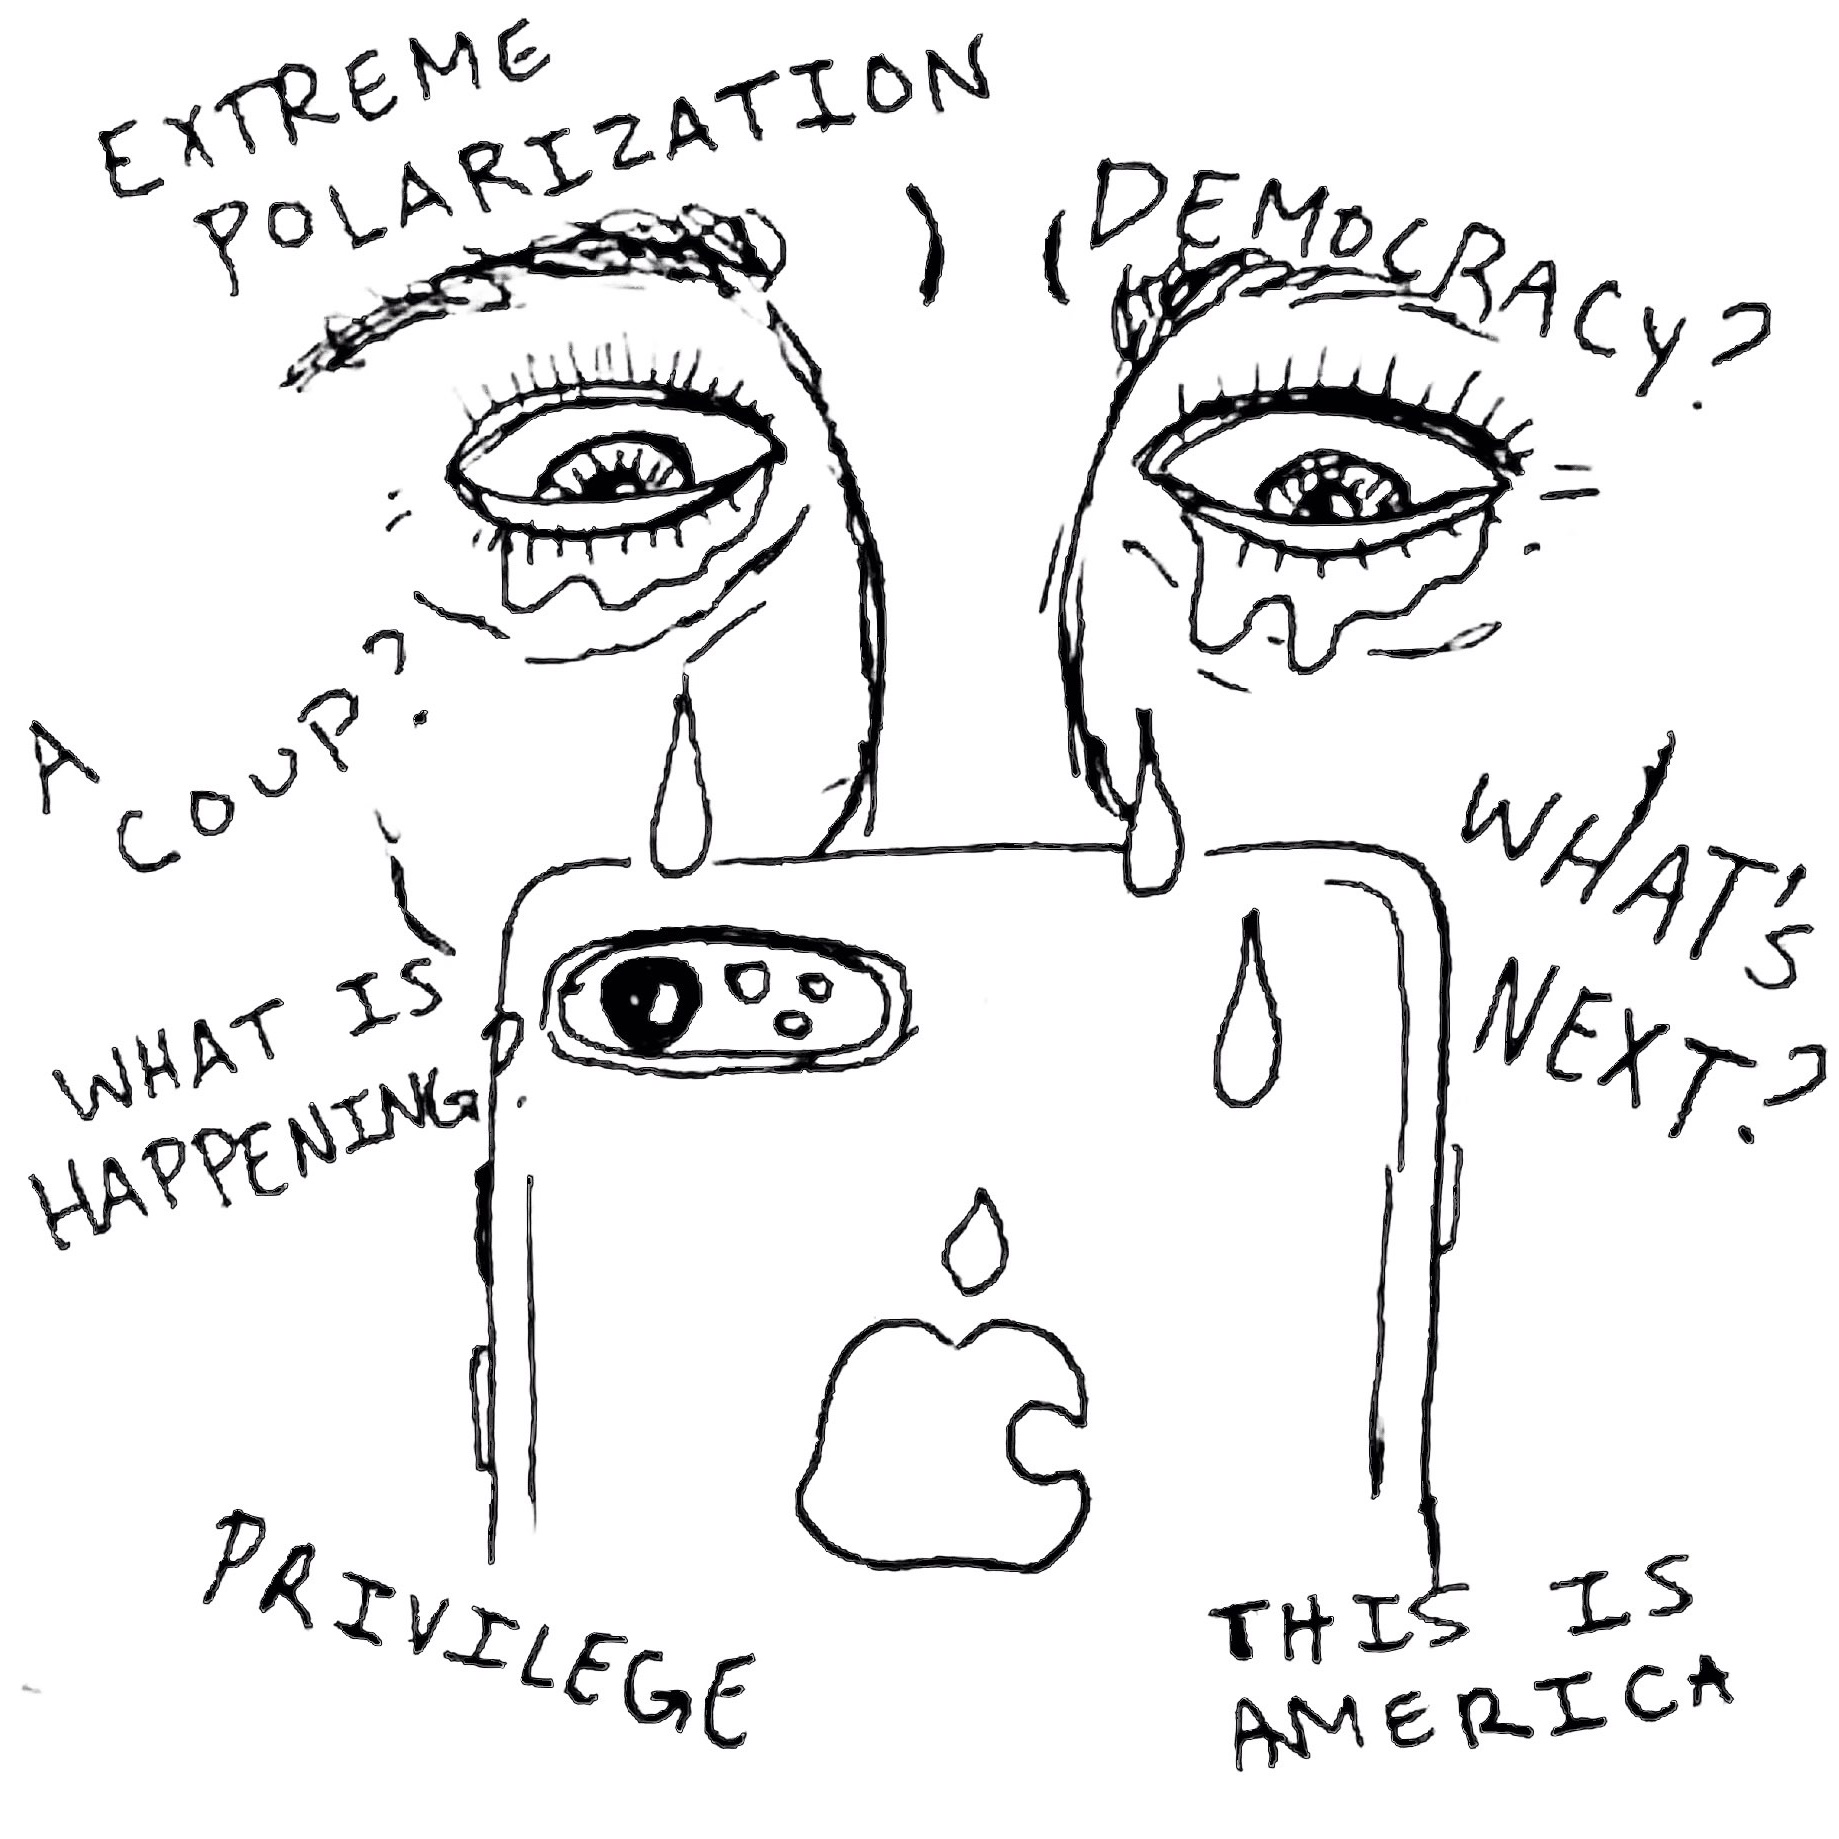 EXTREME
POLARIZATION
DEMOCRACY?
A
COUP?
WHAT'S
NEXT?
WHAT IS
HAPPENING?
PRIVILEGE
THIS IS
AMERICA